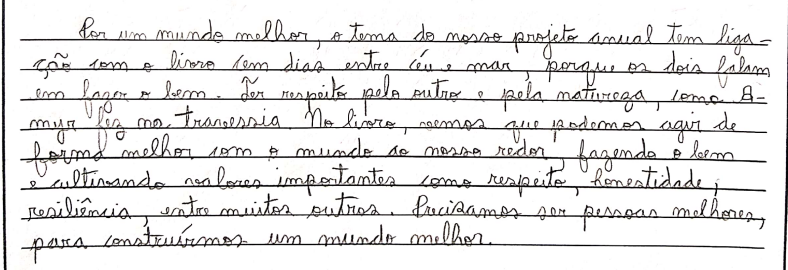 Por um mundo melhor, o tema do nosso projeto anual tem liga-
ção com o livro Cem dias entre céu e mar, porque os dois falam
em fazer o bem. Ter respeito pelo outro e pela natureza, como A-
myr fez na travessia. No livro, vemos que podemos agir de
forma melhor com o mundo ao nosso redor, fazendo o bem
e cultivando valores importantes como respeito, honestidade,
resiliência, entre muitos outros. Precisamos ser pessoas melhores,
para construírmos um mundo melhor.